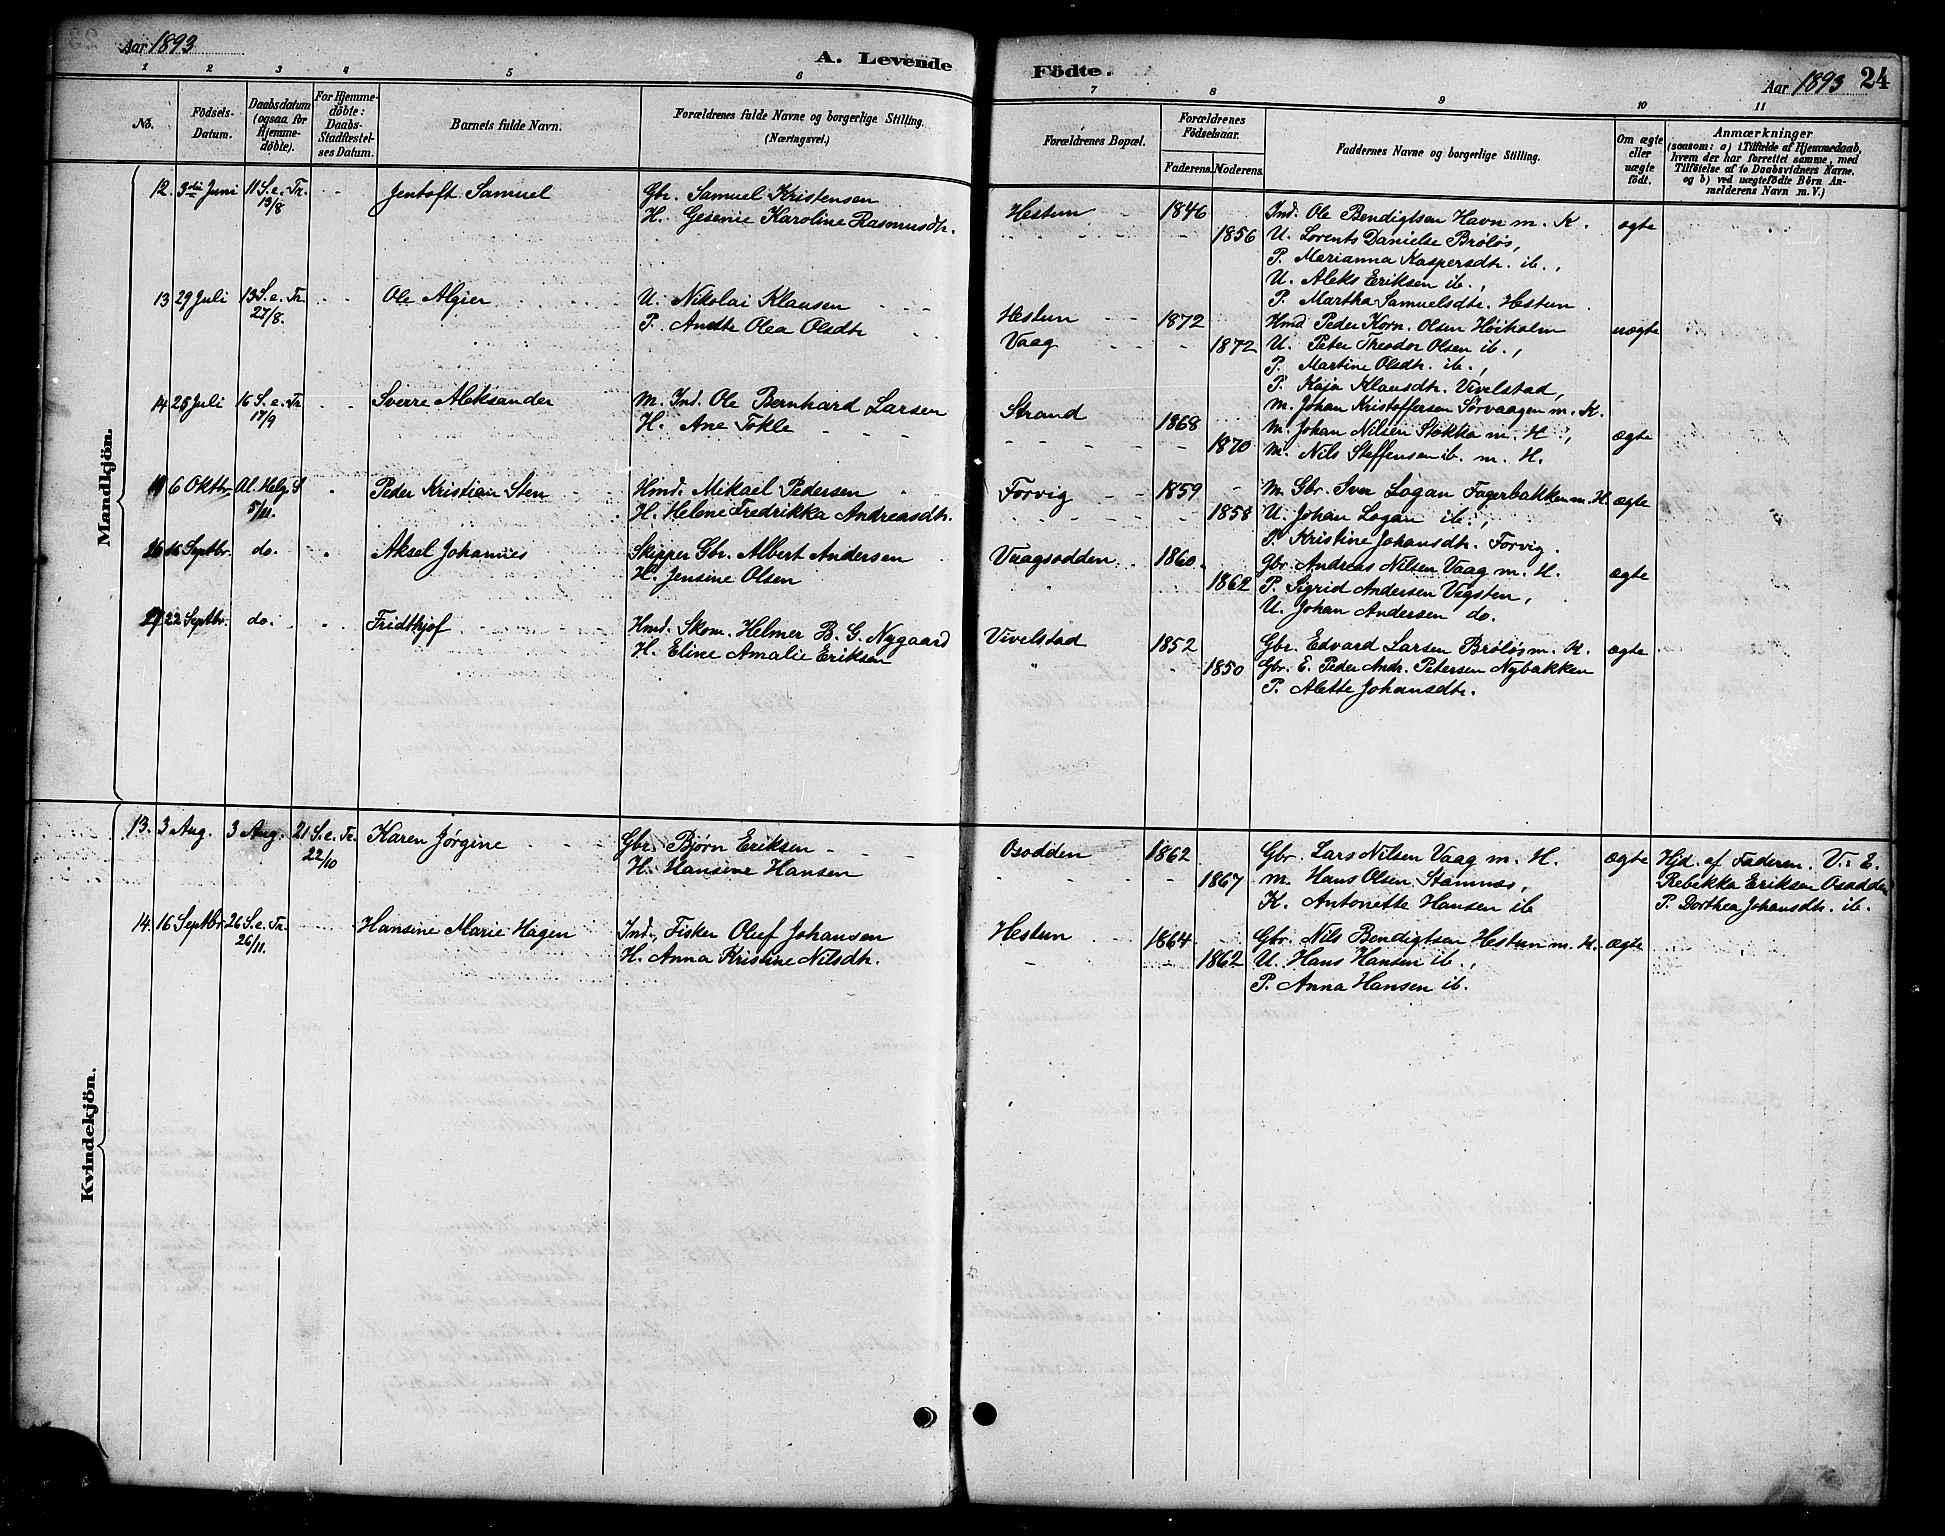 Aar 1893
A. Levende
Födte.
Aar 1893 24
1 2 3 4 5 6 7 8 9 10 11
No.
Födsels-
Datum.
Daabsdatum
(ogsaa for
Hjemme-
døbte).
For Hjemme-
døbte:
Daabs-
Stadfæstel-
ses Datum.
Barnets fulde Navn.
Forældrenes fulde Navne og borgerlige Stilling.
(Næringsvei.)
Forældrenes Bopæl.
Forældrenes
Födselsaar.
Faderens. Moderens.
Faddernes Navne og borgerlige Stilling.
Om ægte
eller
uægte
födt.
Anmærkninger
(saasom: a) i Tilfælde af Hjemmedaab,
hvem der har forrettet samme, med
Tilföielse af to Daabsvidners Navne,
og b) ved uægtefödte Börn An-
melderens Navn m. V.)
Mandkjön.
12. 3die Juni 11 S. e. Tr. Jentoft Samuel Gbr. Samuel Kristensen Hestun 1846 Ind. Ole Bendigtsen Havn m. K. ægte
13/8 H. Gesenie Karoline Rasmusdtr. 1856 U. Lorents Danielse Brøløs,
P. Marianna Kaspersdtr. ib.,
U. Aleks Eriksen ib.,
P. Martha Samuelsdtr. Hestun.
13 29 Juli 13 S. e. Tr. Ole Algier U. Nikolai Klausen Hestun 1872 Kmd Peder Korn. Olsen Høiholm uægte
27/8. P. Andte Olea Olsdtr Vaag 1872 U. Peter Theodor Olsen ib.,
P. Martine Olsdtr. ib.,
P. Kaja Klausdtr. Vivelstad,
14 25 Juli 16 S. e. Tr Sverre Aleksander M. Ind. Ole Bernhard Larsen Strand 1868 M. Johan Kristoffersen Sørvaagen m. K.
17/9 H. Ane Tokle 1870 M. Johan Nilsen Stokka m. H., ægte
M. Nils Steffensen ib. m. H.
6 Oktbr. Al. Helg. S Peder Kristian Sten Hmd. Mikael Pedersen Forvig 1859 M. Gbr. Iver Logan Fagerbakken m. H. ægte
5/11. H. Helene Fredrikka Andreasdtr. 1858 U. Johan Logan ib.,
P. Kristine Johansdtr. Forvig.
26 16 Septbr. do. Aksel Johannes Skipper Gbr. Albert Andersen Vaagsodden 1860 Gbr. Andreas Nilsen Vaag m. H. ægte
H. Jensine Olsen 1862 P. Sigrid Andersen Vegsten,
U. Johan Andersen do.
27 22 Septbr. do. Fridthjof Hmd. Skom. Helmer B. G. Nygaard Vivelstad 1852 Gbr. Edvard Larsen Brøløs m. K. ægte
H. Eline Amalie Eriksen 1850 Gbr. E. Peder Andr. Petersen Nybakken
P. Alette Johansdtr.
Kvindekjön.
13. 3 Aug. 3 Aug. 21 S. e. Tr. Karen Jørgine Gbr. Bjørn Eriksen Osodden 1862 Gbr. Lars Nilsen Vaag m. H. ægte Hjd. af Faderen. V: E.
22/10 H. Hansine Hansen 1867 M. Hans Olsen Stamnes, Rebekka Eriksen Osodden
K. Antonette Hansen ib P. Dorthea Johansdtr. ib.
14. 16 Septbr 26 S. e. Tr. Hansine Marie Hagen Ind., Fisker Oluf Johansen Hestun 1864 Gbr. Nils Bendigtsen Hestun m. H. ægte
26/11. H. Anna Kristine Nilsdtr. 1862 U. Hans Hansen ib.,
P. Anna Hansen ib.